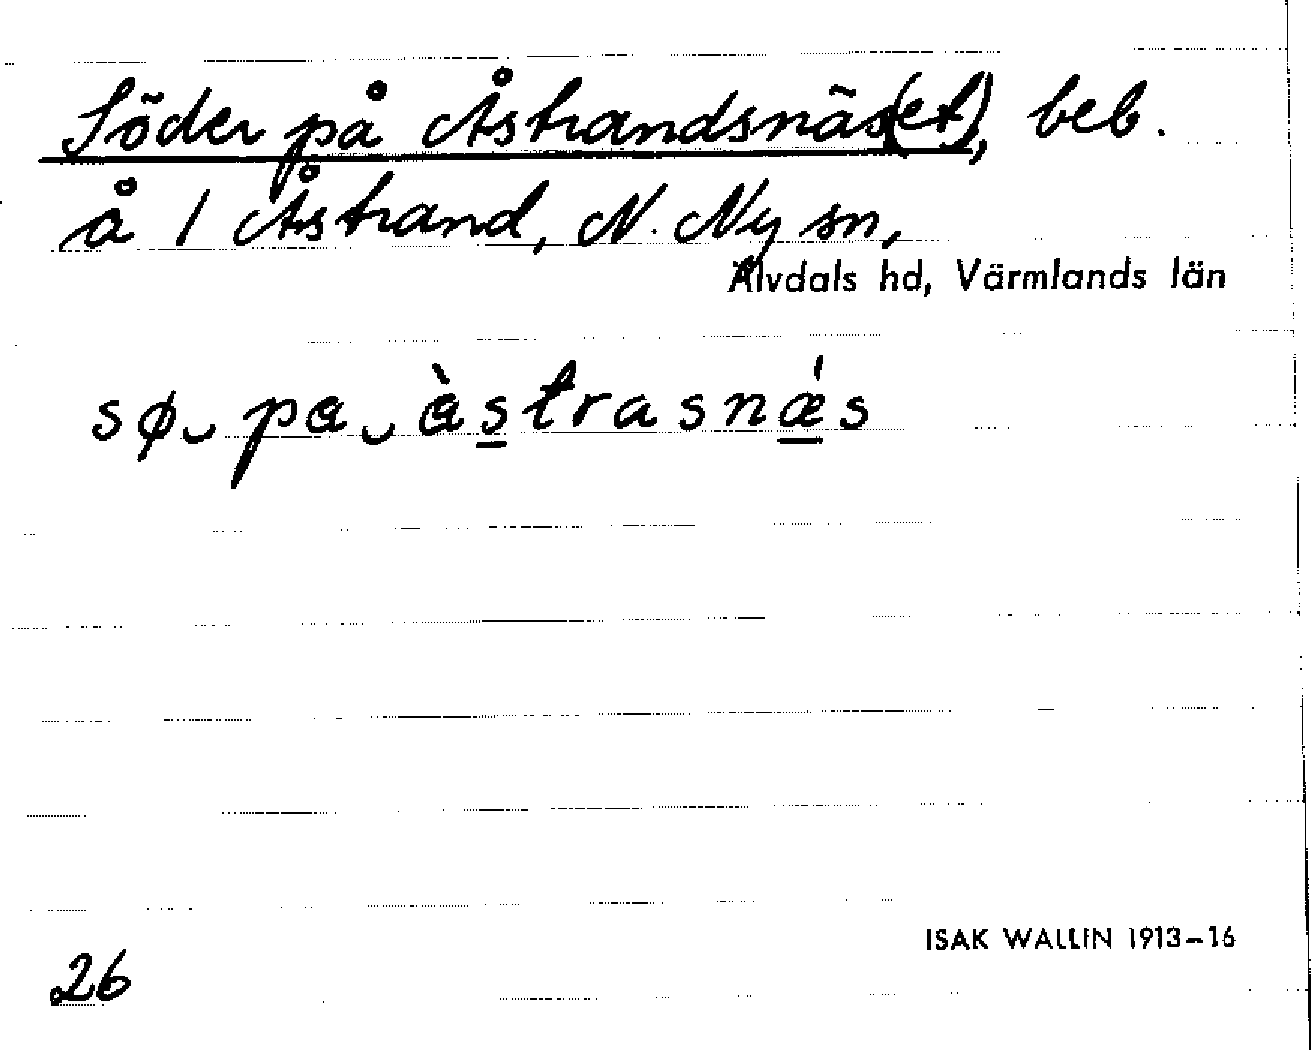 Söder på Åstrandsnäs(et), beb.
å 1 Åstrand, N. Ny sn,
Älvdals hd, Värmlands län
sø‿pa‿àstrasnǽs
ISAK WALLIN 1913–16
26